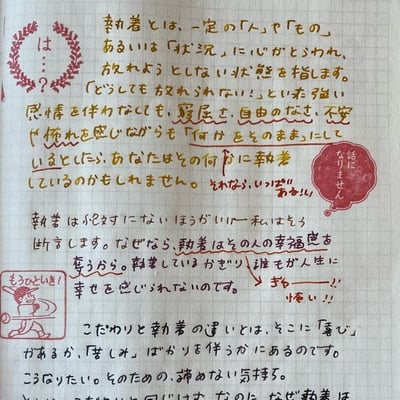 は…?
執着とは、一定の「人」や「もの」
あるいは「状況」に心がとらわれ、
放れようとしない状態を指します。
「どうしても放れられない!」といった強い
感情を伴わなくても、窮屈さ、自由のなさ、不安
や怖れを感じながらも「何かをそのまま」にして
いるとしたら、あなたはその何かに執着
しているのかもしれません。
それなら、いっぱいある!!
話になりません
執着は絶対にないほうがいい― 私はそう
断言します。なぜなら、執着はその人の幸福感を
奪うから。執着しているかぎり、誰もが人生に
幸せを感じられないのです。
ぎゃー!!
怖い!!
もうひといき!
こだわりと執着の違いとは、そこに「喜び」
があるか、「苦しみ」ばかりを伴うかにあるのです。
こうなりたい。そのための、諦めない気持ち。